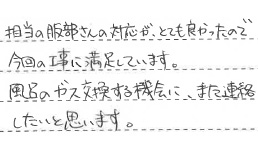 担当の服部さんの対応が、とても良かったので
今回の工事に満足しています。
風呂のガス交換する機会に、また連絡
したいと思います。